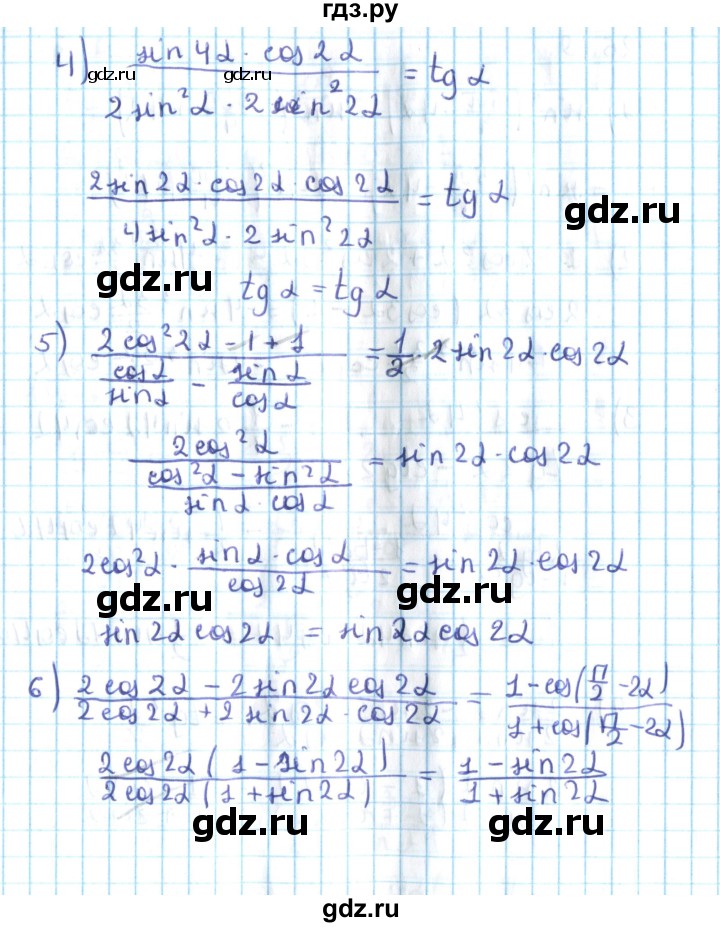 гдз.ру
4) sin 4α · cos 2α / 2 sin²α · 2 sin² 2α = tg α
gdz.ru gdz.ru
2 sin 2α · cos 2α · cos 2α / 4 sin²α · 2 sin² 2α = tg α
gdz.ru
gdz.ru
tg α = tg α
5) 2 cos² 2α - 1 + 1 / (cos α / sin α - sin α / cos α) = 1/2 · 2 sin 2α · cos 2α
2 cos² α / (cos² α - sin² α / sin α · cos α) = sin 2α · cos 2α
2 cos² α · sin α · cos α / cos 2α = sin 2α · cos 2α
gdz.ru gdz.ru
sin 2α cos 2α = sin 2α cos 2α
6) 2 cos 2α - 2 sin 2α cos 2α / 2 cos 2α + 2 sin 2α · cos 2α = 1 - cos(π/2 - 2α) / 1 + cos(π/2 - 2α)
2 cos 2α (1 - sin 2α) / 2 cos 2α (1 + sin 2α) = 1 - sin 2α / 1 + sin 2α
gdz.ru gdz.ru
gdz.ru